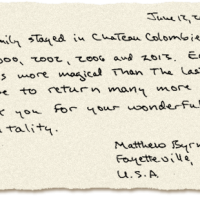 June 12, 2
mily stayed in Chateau Colombie
000, 2002, 2006 and 2012. E
s more magical than the las
e to return many more
k you for your wonderful
tality.
Matthew Byrn
Fayetteville,
U.S.A